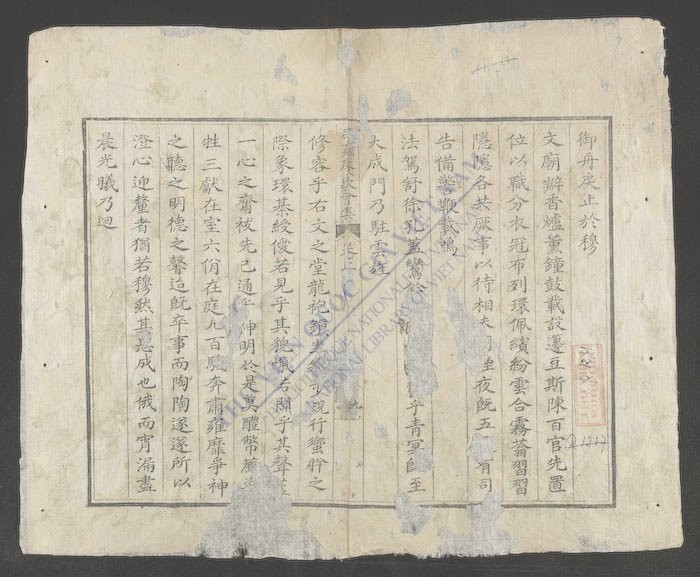 御舟戾止於穆
文廟辦香爐薰鐘鼓載設籩豆斯陳百官先置
位以職分衣冠布列環佩繽紛雲合霧蓊習習
隱隱各共厥事以待相夫夜既五有司
告備警鞭載鳴
法駕舒徐孔蓋鸞乎青冥即至
大成門乃駐雲
卷三
九
修容乎右文之堂龍袍規行蠁肸之
際象環綦綬僾若見乎其貌愾右聞乎其聲
一心之齋祓先已通乎神明於是奠醴幣薦
牲三獻在室六佾在庭凡百駿奔肅雍靡爭神
之聽之明德之馨迨既卒事而陶陶遂遂所以
澄心迎釐者猶若穆然其思成也俄而宵漏盡
晨光曦乃迴
THƯ VIỆN QUỐC GIA VIỆT NAM
NATIONAL LIBRARY OF VIETNAM